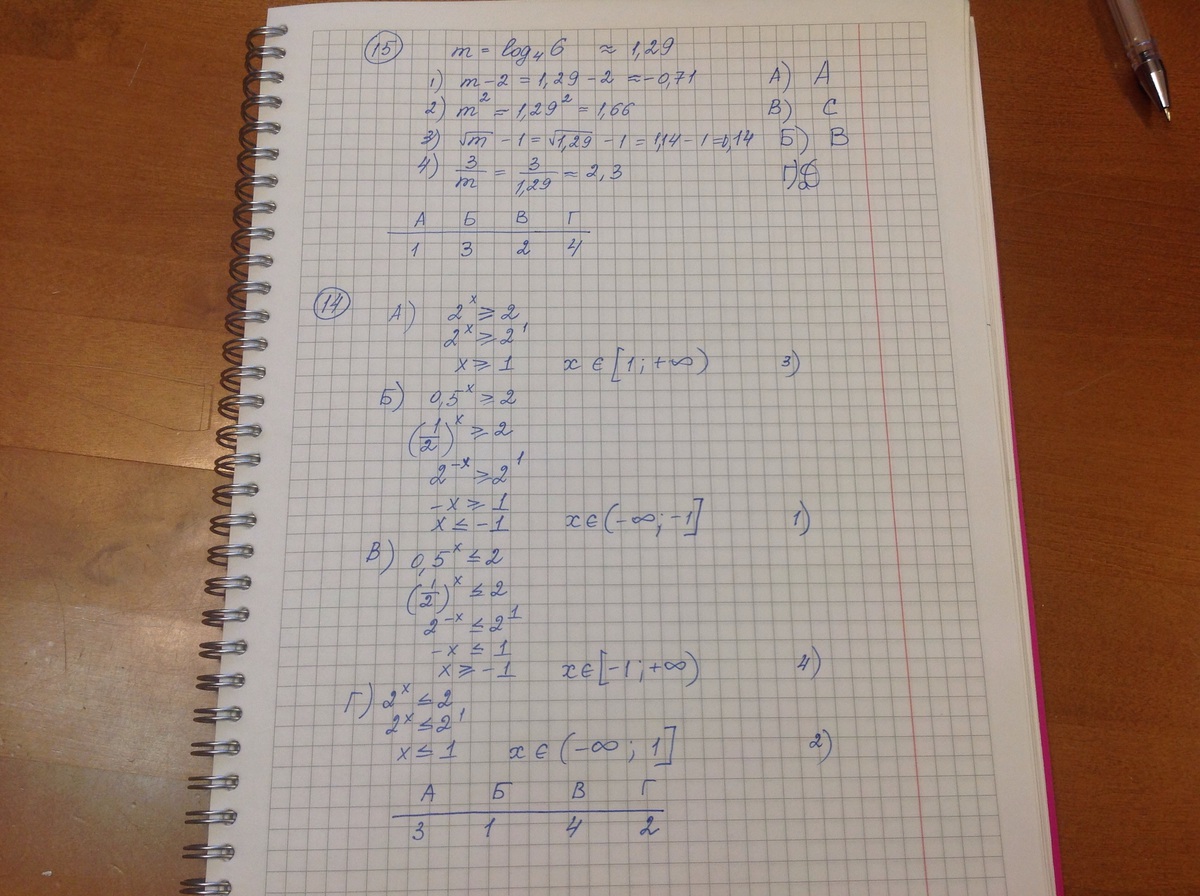 15 m = log₄6 ≈ 1,29
1) m - 2 = 1,29 - 2 ≈ -0,71 А) A
2) m² = 1,29² = 1,66 В) C
3) √m - 1 = √1,29 - 1 = 1,14 - 1 = 0,14 Б) B
4) 3/m = 3/1,29 = 2,3 Г) D
А Б В Г
1 3 2 4
14 А) 2ˣ ≥ 2
2ˣ ≥ 2¹
x ≥ 1 x ∈ [1; +∞) 3)
Б) 0,5ˣ ≥ 2
(1/2)ˣ ≥ 2
2⁻ˣ ≥ 2¹
-x ≥ 1
x ≤ -1 x ∈ (-∞; -1] 1)
В) 0,5ˣ ≤ 2
(1/2)ˣ ≤ 2
2⁻ˣ ≤ 2¹
-x ≤ 1
x ≥ -1 x ∈ [-1; +∞) 4)
Г) 2ˣ ≤ 2
2ˣ ≤ 2¹
x ≤ 1 x ∈ (-∞; 1] 2)
А Б В Г
3 1 4 2